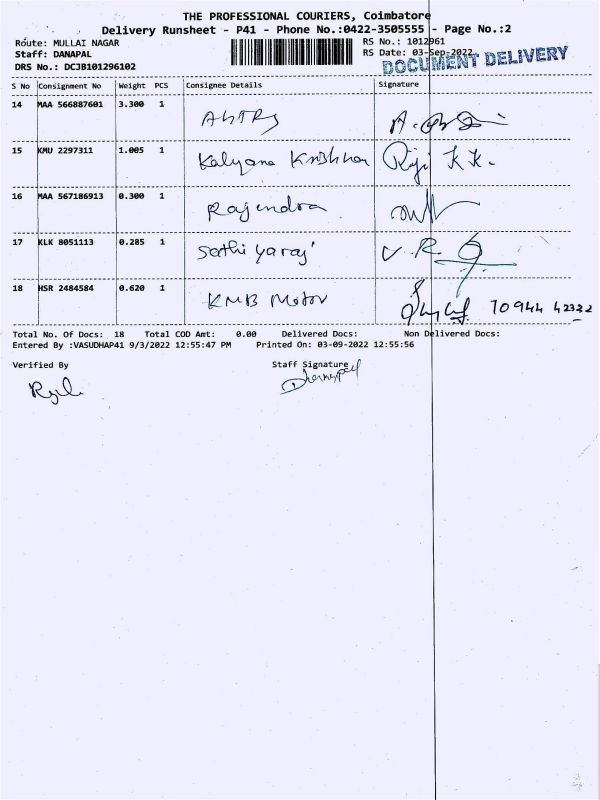 THE PROFESSIONAL COURIERS, Coimbatore
Delivery Runsheet - P41 - Phone No.:0422-3505555 - Page No.:2
Route: MULLAI NAGAR RS No.: 1012961
Staff: DANAPAL RS Date: 03-Sep-2022
DRS No.: DCJB101296102 DOCUMENT DELIVERY
S No Consignment No Weight PCS Consignee Details Signature
14 MAA 566887601 3.300 1
15 KMU 2297311 1.005 1 Kalyana Krishnan Riji K.K.
16 MAA 567186913 0.300 1 Rajendra
17 KLK 8051113 0.285 1 Sathiyaraj
18 HSR 2484584 0.620 1 KMB Motor 70944 42322
Total No. Of Docs: 18 Total COD Amt: 0.00 Delivered Docs: Non Delivered Docs:
Entered By :VASUDHAP41 9/3/2022 12:55:47 PM Printed On: 03-09-2022 12:55:56
Verified By Staff Signature